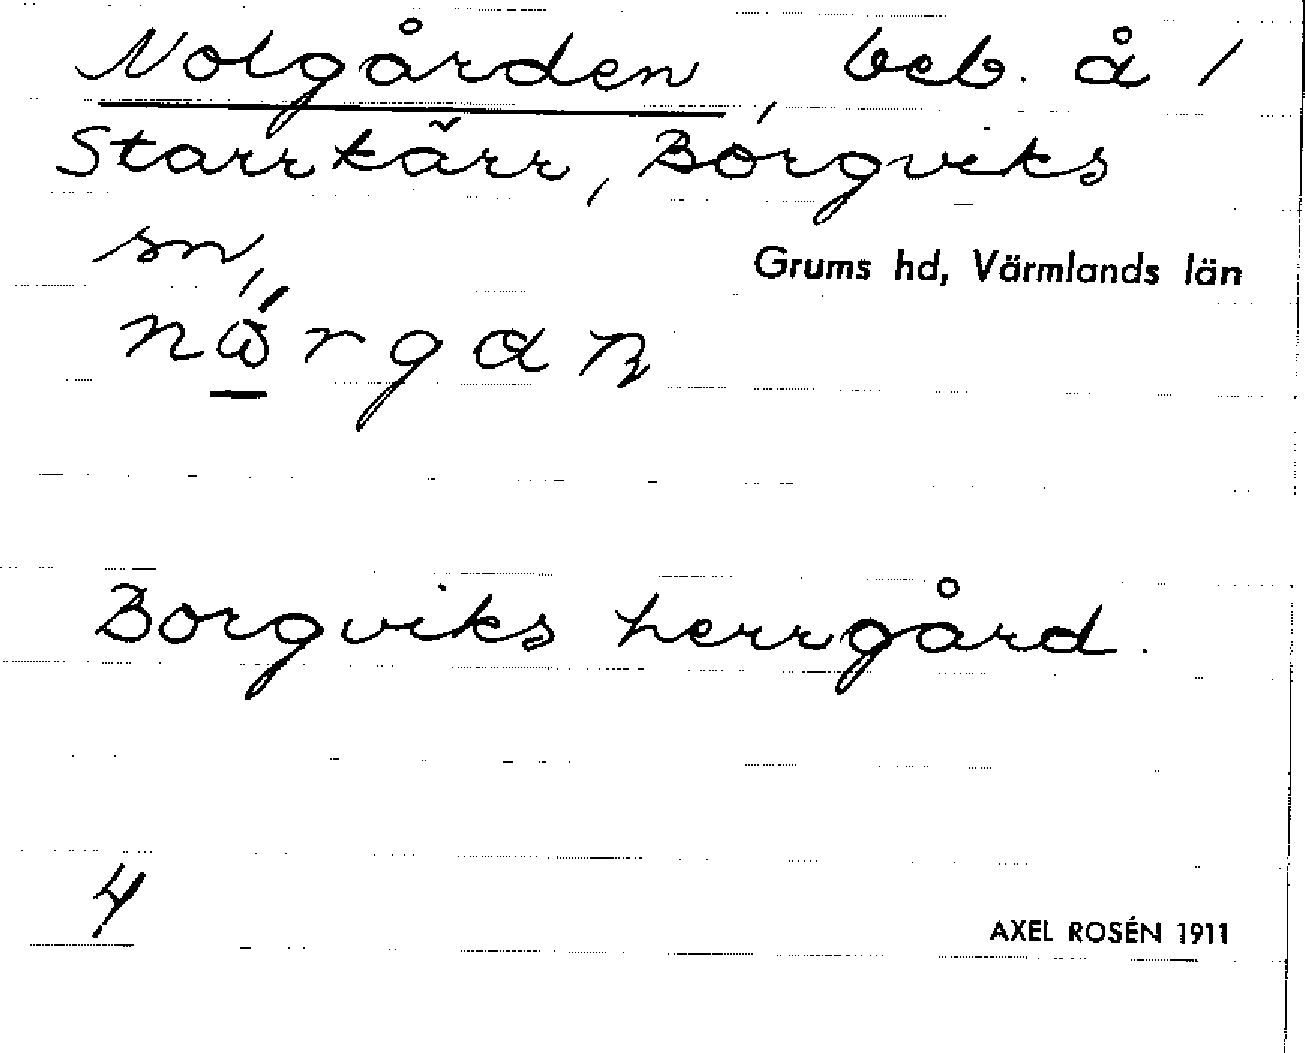 Nolgården, beb. å 1
Starrkärr, Borgviks
sn,
Grums hd, Värmlands län
Borgviks herrgård.
4
AXEL ROSÉN 1911